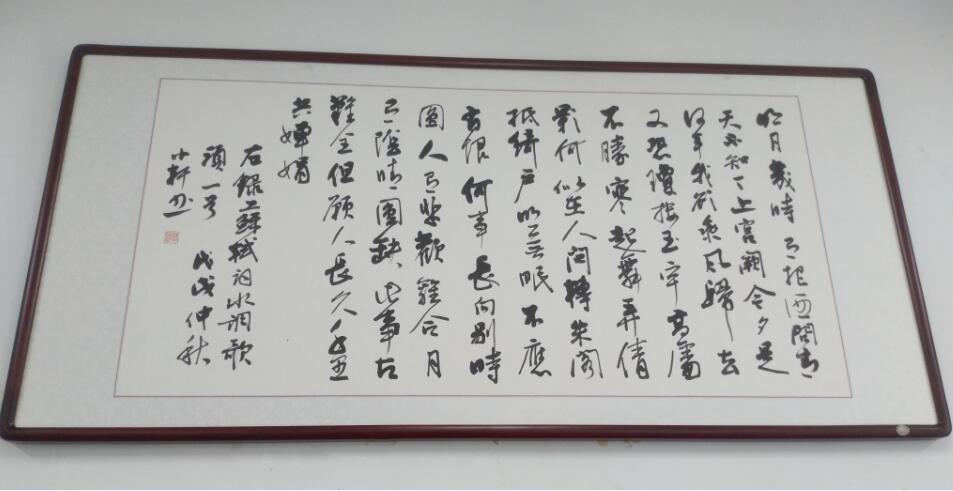 明月幾時有把酒問青
天不知天上宮闕今夕是
何年我欲乘風歸去
又恐瓊樓玉宇高處
不勝寒起舞弄清
影何似在人間轉朱閣
低綺戶照無眠不應
有恨何事長向別時
圓人有悲歡離合月
有陰晴圓缺此事古
難全但願人長久千里
共嬋娟
右錄蘇軾詞水調歌
頭一首 戊戌仲秋
小軒